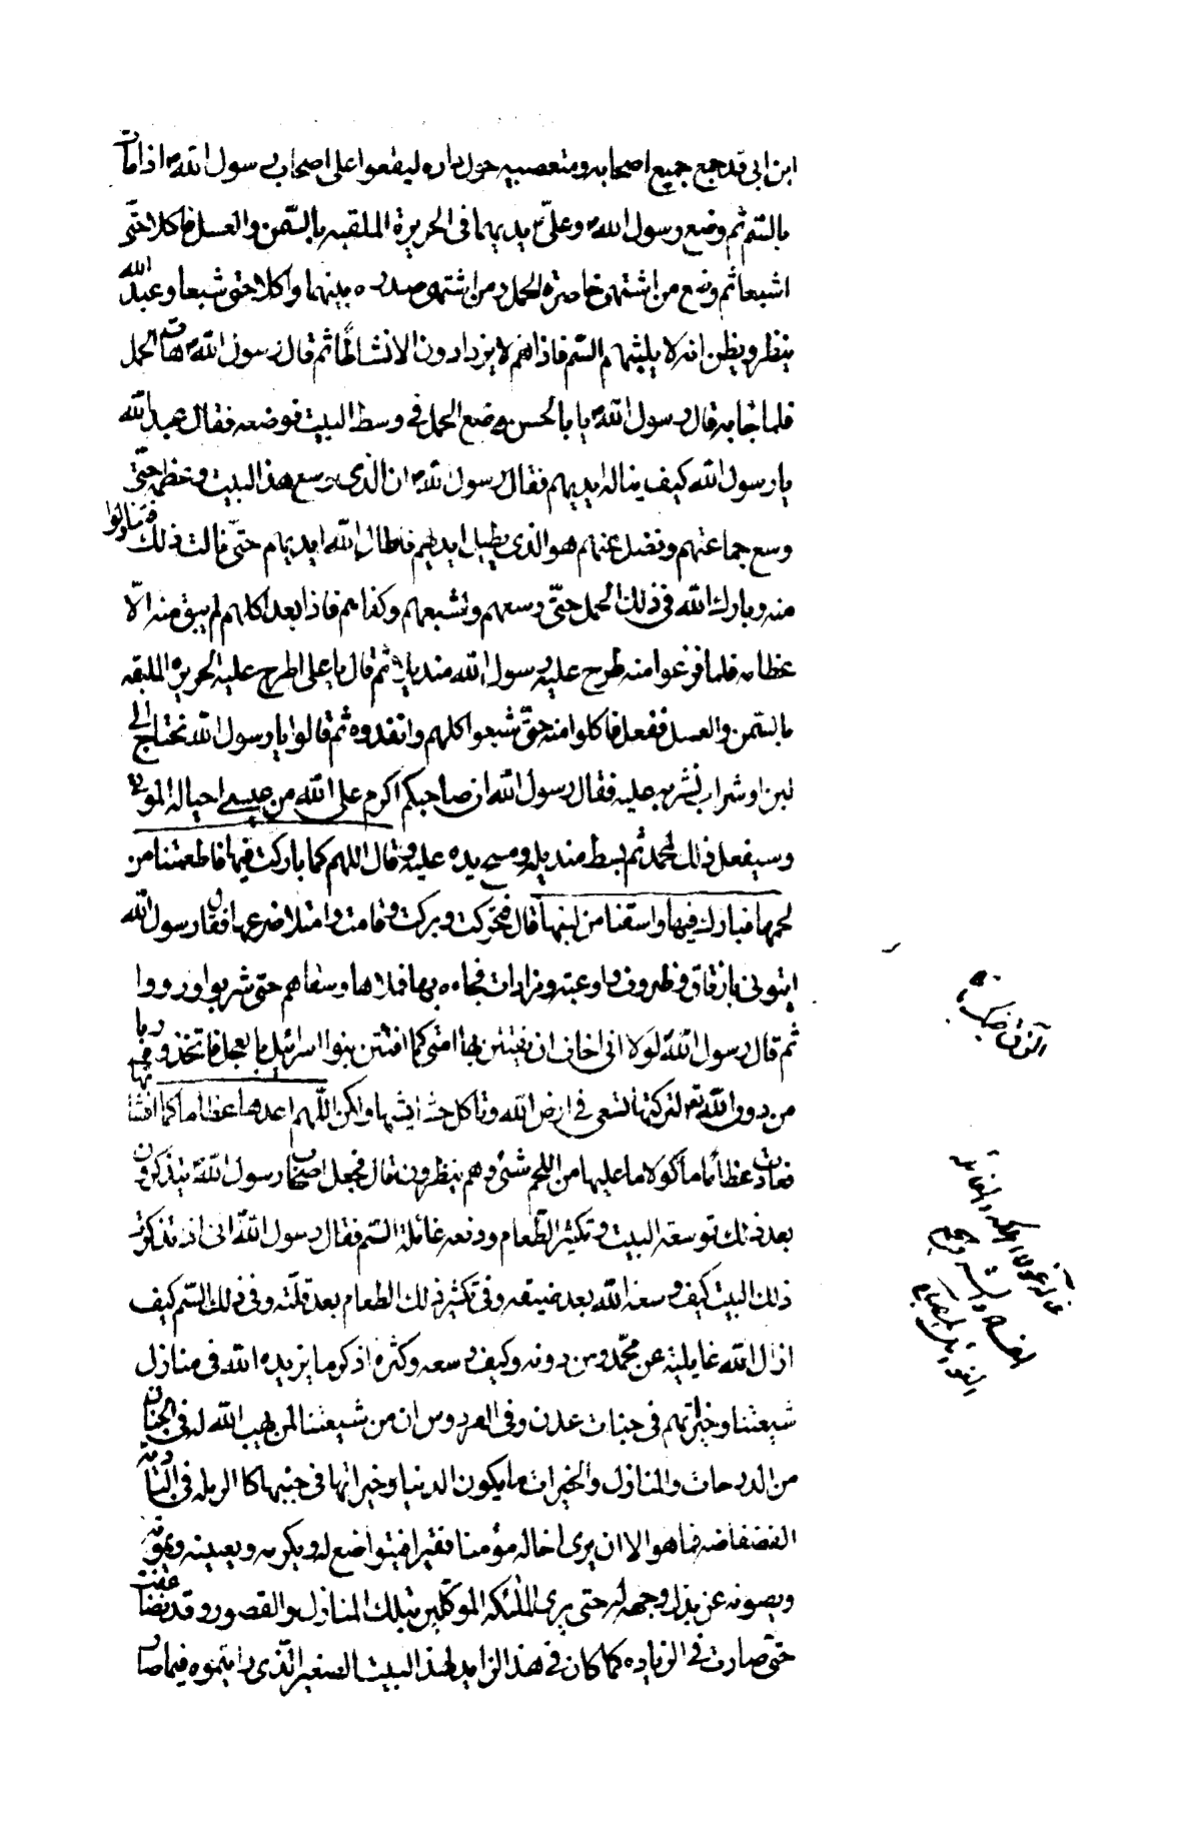 ابن ابى قد جمع جميع اصحابه ومتعصبيه حول داره ليقعوا على اصحاب رسول اللهؐ اذا مات
بالسّم ثم وضع رسول اللهؐ وعلىّؑ يديهما فى الحريرة الملبقه بالسّمن والعسل فاكلا حتّى
اشبعا ثم وضع من اشتهى خاصرة الحمل ومن اشتهى صدره بينهما واكلا حتى شبعا وعبد الله
ينظر ويظن انه لا يلبثهم السّم فاذا هم لا يزدادون الا نشاطًا ثم قال رسول اللهؐ هات الحمل
فلما جابه قال رسول اللهؐ يا بالحسن ضع الحمل فى وسط البيت فوضعه فقال عبد الله
يا رسول الله كيف يناله ايديهم فقال رسول اللهؐ ان الّذى وسع هذا البيت وعظمه حتّى
وسع جماعتهم وفضل عنهم هو الذى يطيل ايديهم فاطال الله ايديهم حتّى نالت ذلك فتناولوا
منه وبارك الله فى ذلك الحمل حتّى وسعهم واشبعهم وكفاهم فاذا بعد اكلهم لم يبق منه الّا
عظامه فلما فرغوا منه طرح عليه رسول الله منديلا ثم قال يا على اطرح عليه الحريره الملبقه
بالسّمن والعسل ففعل فاكلوا منه حتّى شبعوا كلهم وانفدوه ثم قالوا يا رسول الله نحتاج الى
لبن او شراب نشربه عليه فقال رسول الله ان صاحبكم اكرم على الله من عيسى احيا له الموتى
وسيفعل ذلك لمحمد ثم بسط منديله ومسح يده عليه وقال اللهم كما باركت فيها فاطعمتنا من
لحمها فبارك فيها واسقنا من لبنها قال فتحركت وبركت وقامت وامتلا ضرعها فقال رسول الله
ايتونى بازقاق وظروف واوعيه ومزادات فجاءه بها فملاها وسقاهم حتى شربوا ورووا
ثم قال رسول اللهؐ لولا انى اخاف ان يفتتن بها امتى كما افتتن بنوا اسرائيل بالعجل فاتخذوه ربا
من دون الله تع لتركتها تسعى فى ارض الله وتاكل من حشايشها ولكن اللّهم اعدها عظاما كما انشاتها
فعادت عظاما ماكولا ما عليها من اللحم شئ وهم ينظرون قال فجعل اصحاب رسول اللهؐ يتذاكرون
بعد ذلك توسعة البيت وتكثير الطّعام ودفعه غائلة السّم فقال رسول اللهؐ انى اذ تذكرت
ذلك البيت كيف وسعه الله بعد ضيقه وفى تكثير ذلك الطعام بعد قلّته وفى ذلك السّم كيف
ازال الله غايلته عن محمّد ومن دونه وكيف وسعه وكثره اذكر ما يزيده الله فى منازل
شيعتنا وخيراتهم فى جنات عدن وفى الفردوس ان من شيعتنا لمن يهب الله له فى الجنان
من الدرجات والمنازل والخيرات ما يكون الدنيا وخيراتها فى جنبها كالرمله فى البادية
الفضفاضه فما هو الا ان يرى اخا له مؤمنا فقيرا فيتواضع له ويكرمه ويعينه ويمونه
ويصونه عن بذل وجهه له حتى يرى الملئكه الموكّلين بتلك المنازل والقصور وقد تضاعفت
حتى صارت فى الزياده كما كان فى هذا الزايد لهذا البيت الصغير الّذى رايتموه فيما صار